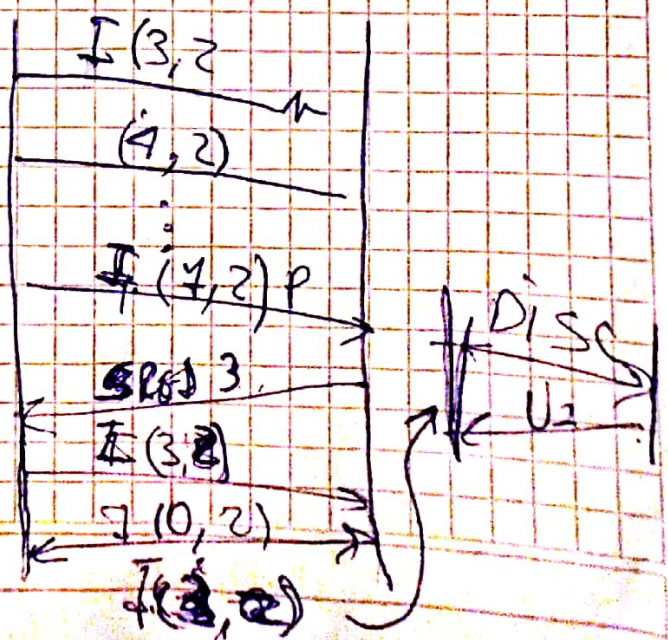 I (3,2
(4,2)
⋮
I (7,2) P
SREJ 3
I (3,2)
I (0,2)
DISC